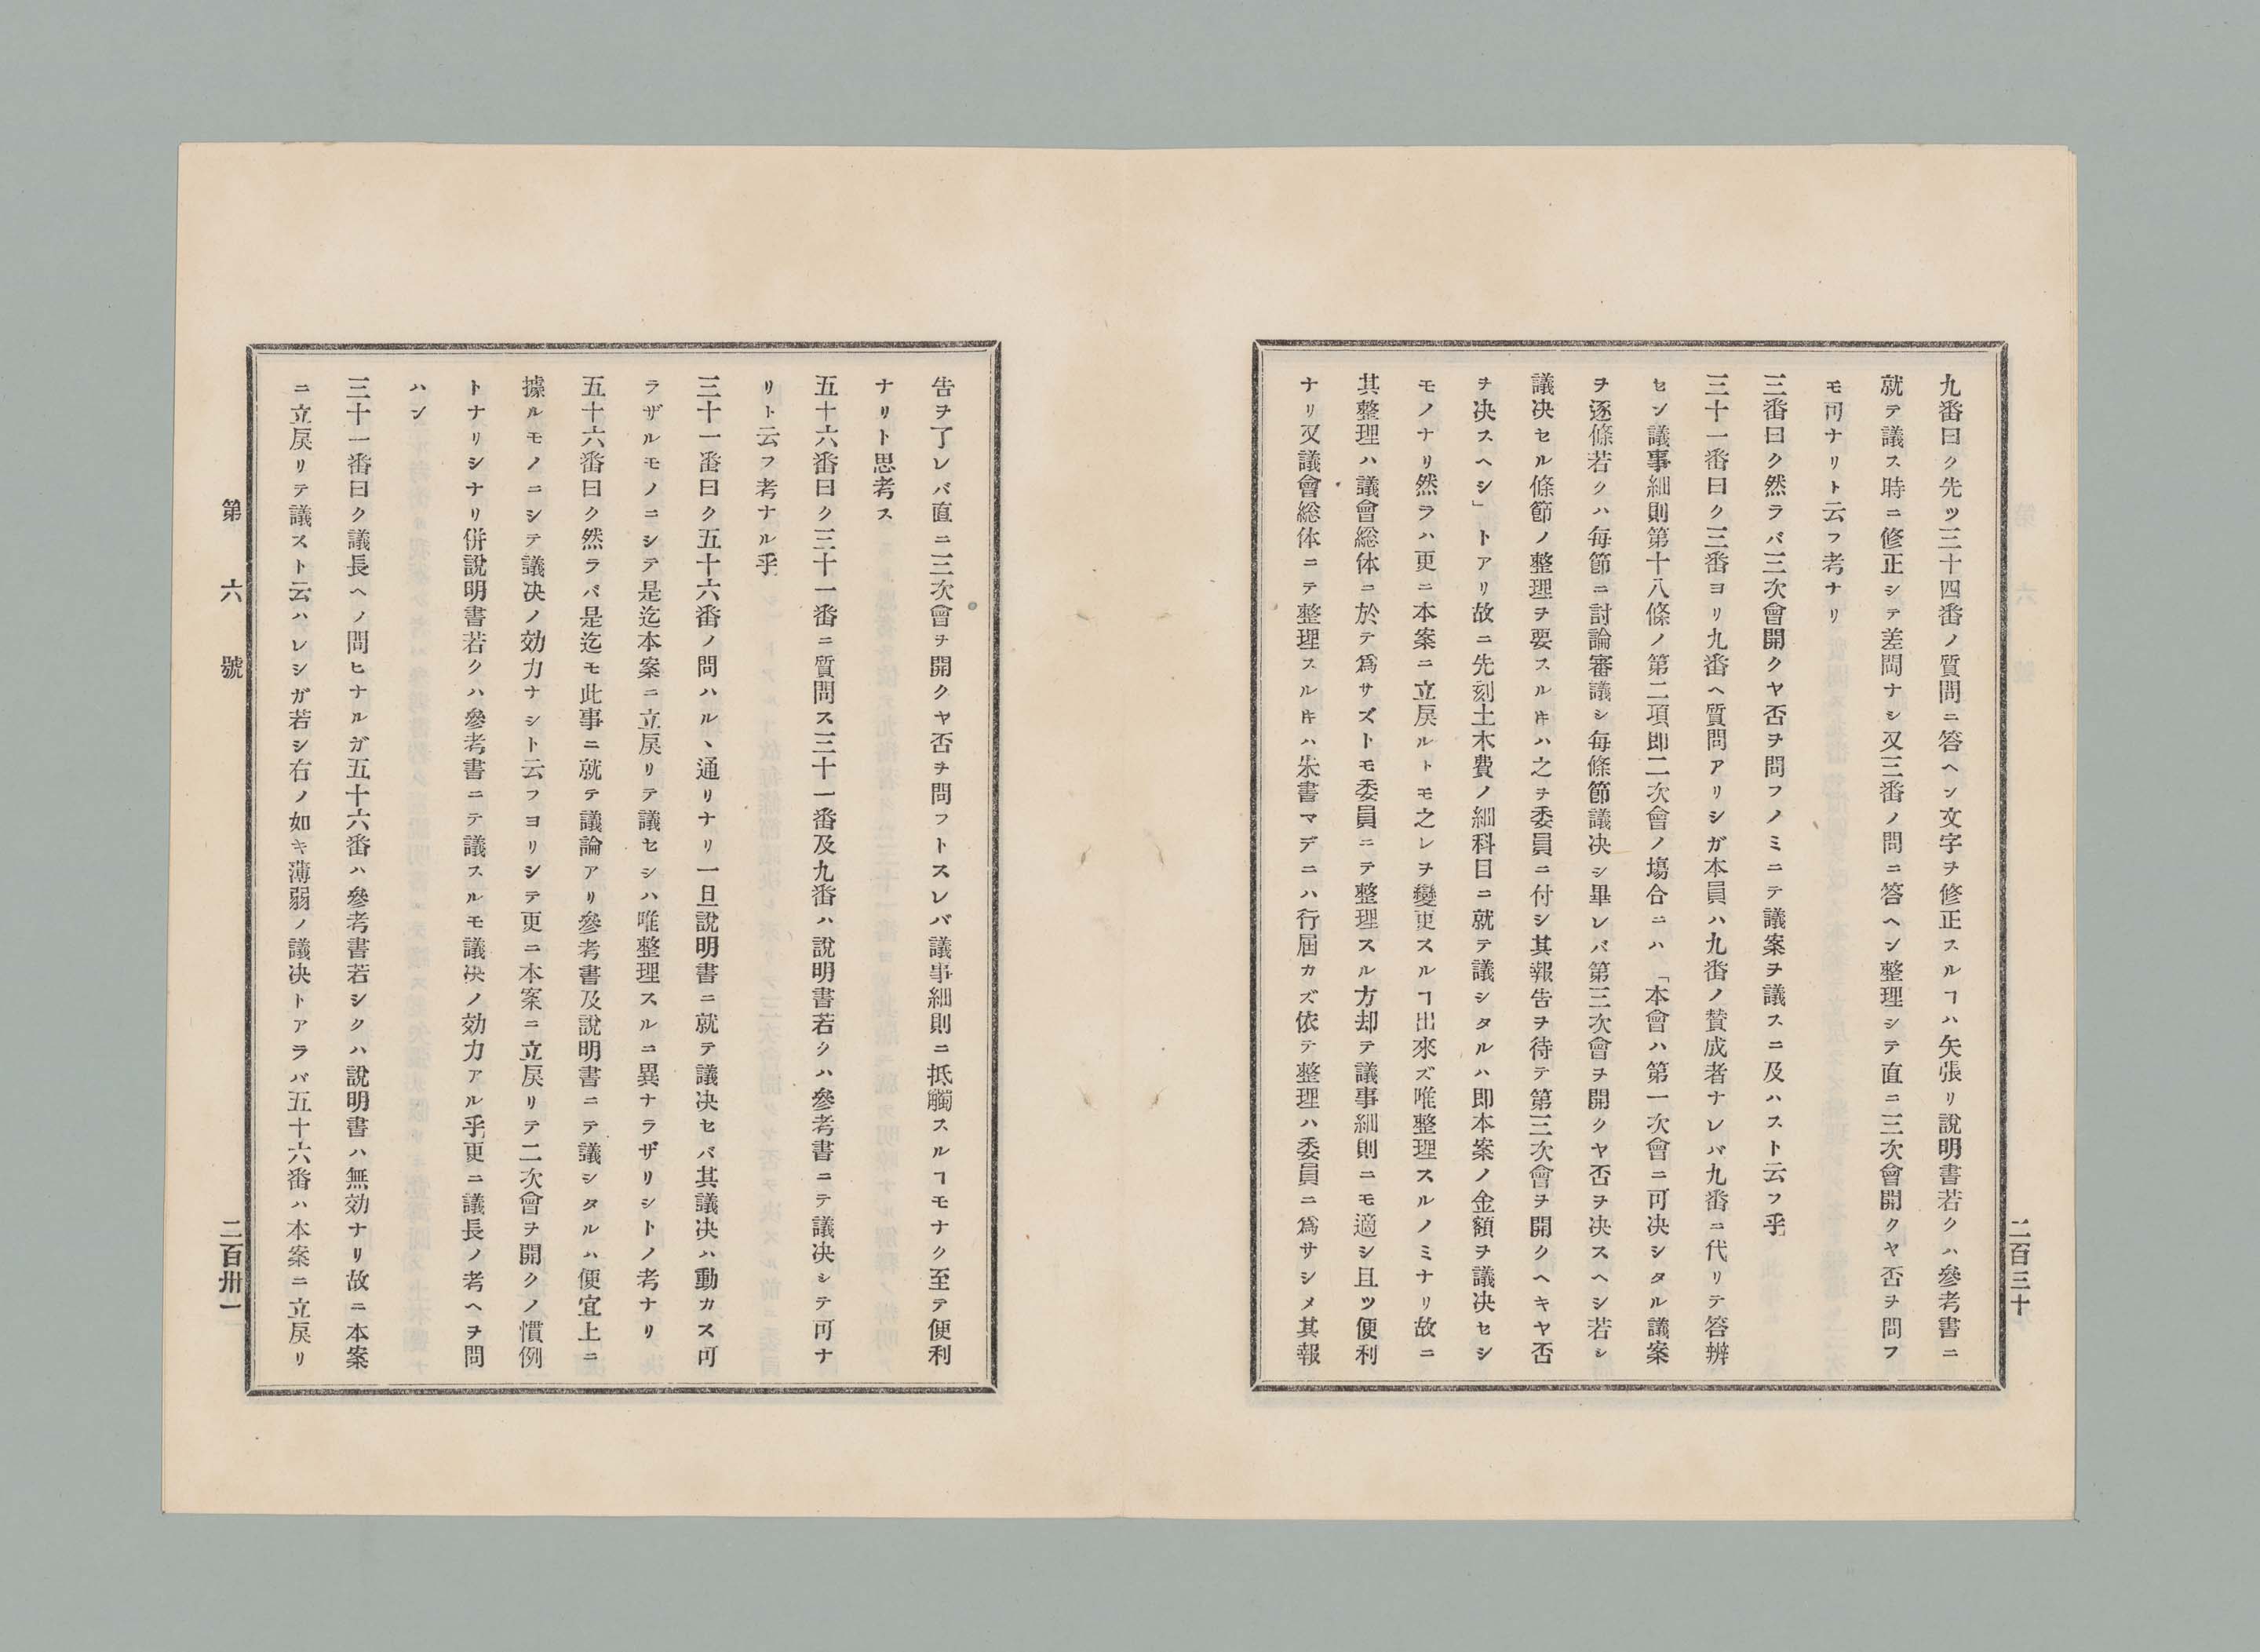 二百三十
九番曰ク先ツ三十四番ノ質問ニ答ヘン文字ヲ修正スルヿハ矢張リ說明書若クハ參考書ニ
就テ議ス時ニ修正シテ差問ナシ又三番ノ問ニ答ヘン整理シテ直ニ三次會開クヤ否ヲ問フ
モ可ナリト云フ考ナリ
三番曰ク然ラバ三次會開クヤ否ヲ問フノミニテ議案ヲ議スニ及ハスト云フ乎
三十一番曰ク三番ヨリ九番ヘ質問アリシガ本員ハ九番ノ賛成者ナレバ九番ニ代リテ答辨
セン議事細則第十八條ノ第二項即二次會ノ塲合ニハ「本會ハ第一次會ニ可决シタル議案
ヲ逐條若クハ每節ニ討論審議シ每條節議决シ畢レバ第三次會ヲ開クヤ否ヲ决スヘシ若シ
議决セル條節ノ整理ヲ要スルㇳキハ之ヲ委員ニ付シ其報告ヲ待テ第三次會ヲ開クヘキヤ否
ヲ决スヘシ」トアリ故ニ先刻土木費ノ細科目ニ就テ議シタルハ即本案ノ金額ヲ議决セシ
モノナリ然ラハ更ニ本案ニ立戾ルトモ之レヲ變更スルヿ出來ズ唯整理スルノミナリ故ニ
其整理ハ議會総体ニ於テ爲サズトモ委員ニテ整理スル方却テ議事細則ニモ適シ且ツ便利
ナリ又議會総体ニテ整理スルㇳキハ朱書マデニハ行屆カズ依テ整理ハ委員ニ爲サシメ其報
告ヲ了レバ直ニ三次會ヲ開クヤ否ヲ問フトスレバ議事細則ニ抵觸スルヿモナク至テ便利
ナリト思考ス
五十六番曰ク三十一番ニ質問ス三十一番及九番ハ說明書若クハ參考書ニテ議决シテ可ナ
リト云フ考ナル乎
三十一番曰ク五十六番ノ問ハルヽ通リナリ一旦說明書ニ就テ議决セバ其議决ハ動カス可
ラザルモノニシテ是迄本案ニ立戾リテ議セシハ唯整理スルニ異ナラザリシトノ考ナリ
五十六番曰ク然ラバ是迄モ此事ニ就テ議論アリ參考書及說明書ニテ議シタルハ便宜上ニ
據ルモノニシテ議决ノ効力ナシト云フヨリシテ更ニ本案ニ立戾リテ二次會ヲ開クノ慣例
トナリシナリ併說明書若クハ參考書ニテ議スルモ議决ノ効力アル乎更ニ議長ノ考ヘヲ問
ハン
三十一番曰ク議長ヘノ問ヒナルガ五十六番ハ參考書若シクハ說明書ハ無効ナリ故ニ本案
ニ立戾リテ議スト云ハレシガ若シ右ノ如キ薄弱ノ議决トアラバ五十六番ハ本案ニ立戾リ
第六號
二百卅一